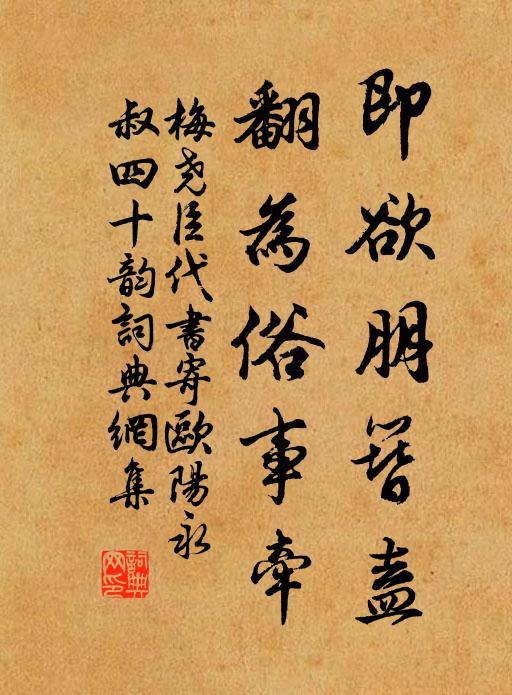 即欲朋簪盍
翻為俗事牽
梅尧臣代書寄歐陽永
叔四十韵詞典網集
詞典网印